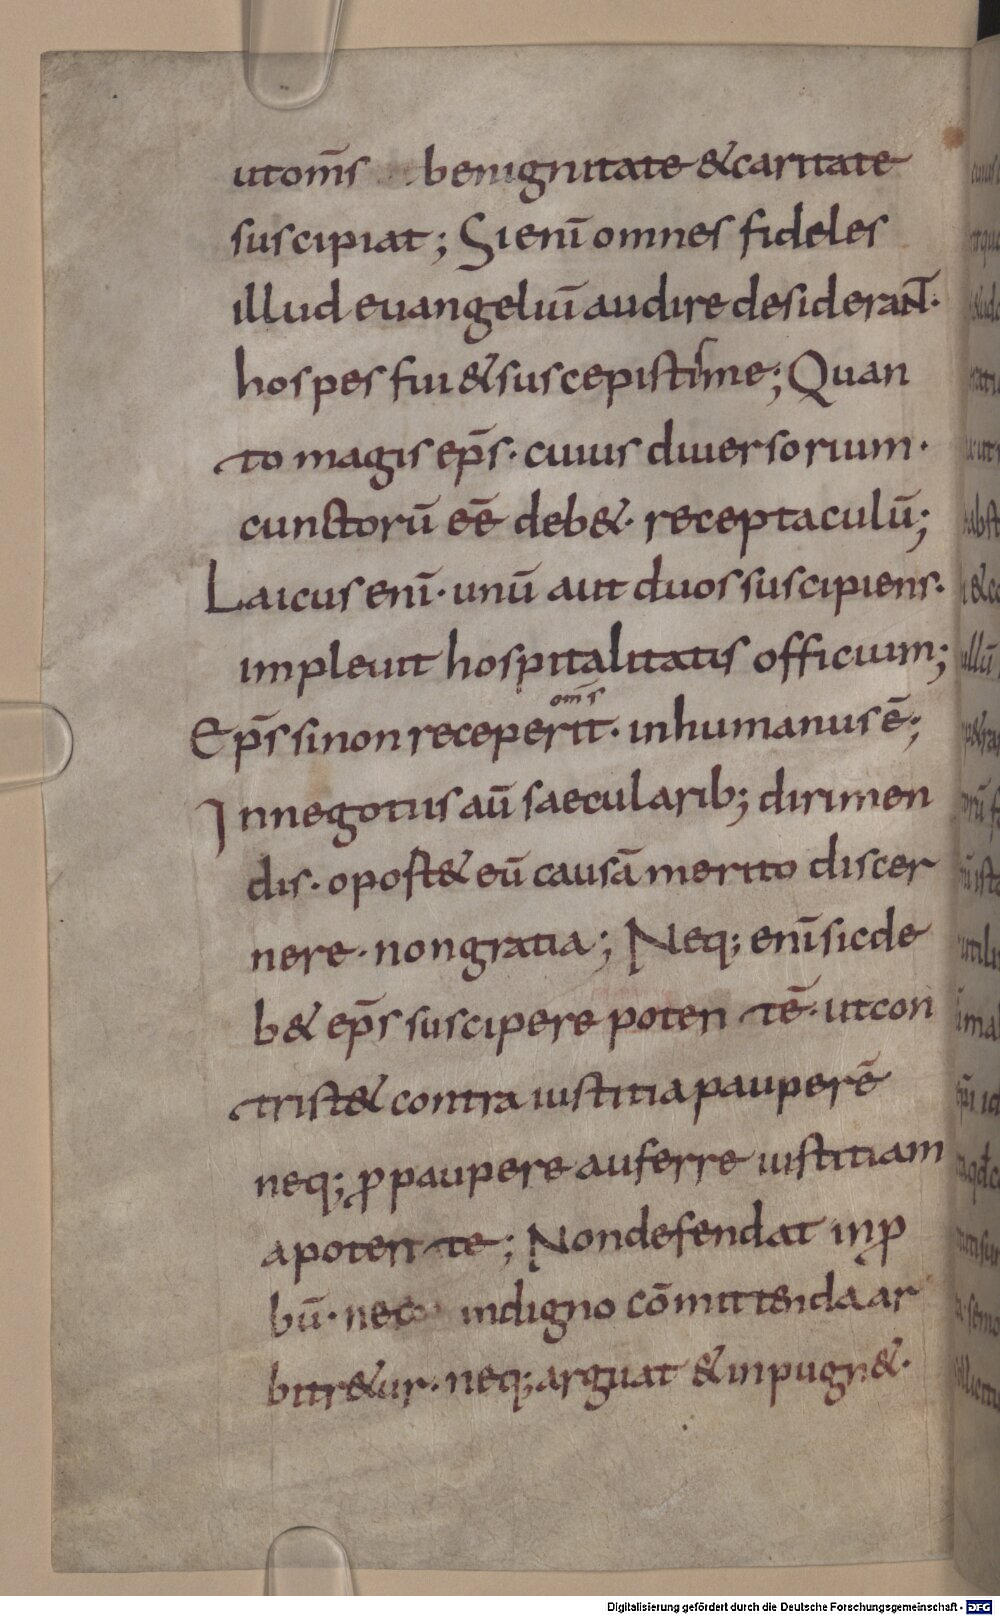 utom̄s benignitate &caritate
suscipiat; Si enī omnes fideles
illud euangeliū audire desiderant·
hospes fui & suscepistis me; Quan
to magis ep̄s· cuius diuersorium·
cunctorū eē deb&· receptaculū;
Laicus enī· unū aut duos suscipiens·
impleuit hospitalitatis officium;
om̄s
Ep̄s si non receperit· inhumanus ē;
In negotiis aū saecularib; dirimen
dis· opost& eū causā merito discer
nere· non gratia; Neq; enī sic de
b& ep̄s suscipere poten tē· ut con
trist& contra iustitia pauperē
neq; ꝓ paupere auferre iustitiam
a poten te; Non defendat inꝓ
bū· nec indigno cōmittenda ar
bitr&ur· neq; arguat & inpugn&·
Digitalisierung gefördert durch die Deutsche Forschungsgemeinschaft - DFG